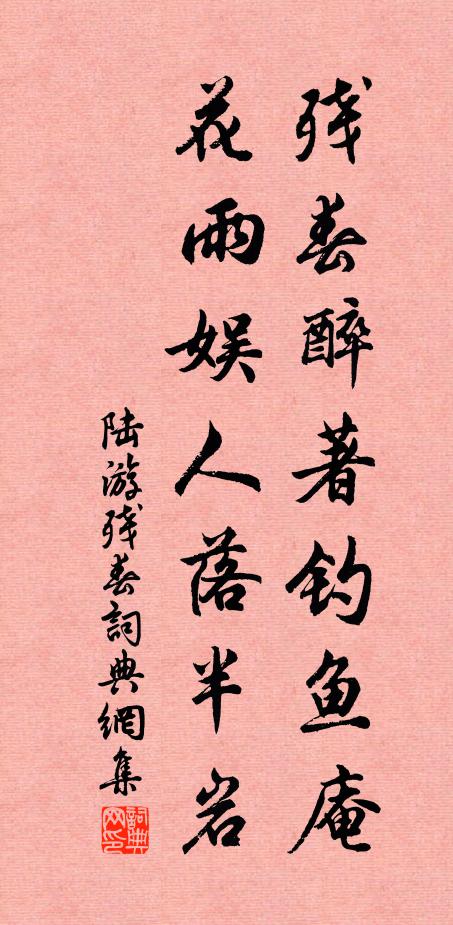 残春醉著钓鱼庵
花雨娱人落半岩
陆游残春詞典網集
詞典网印